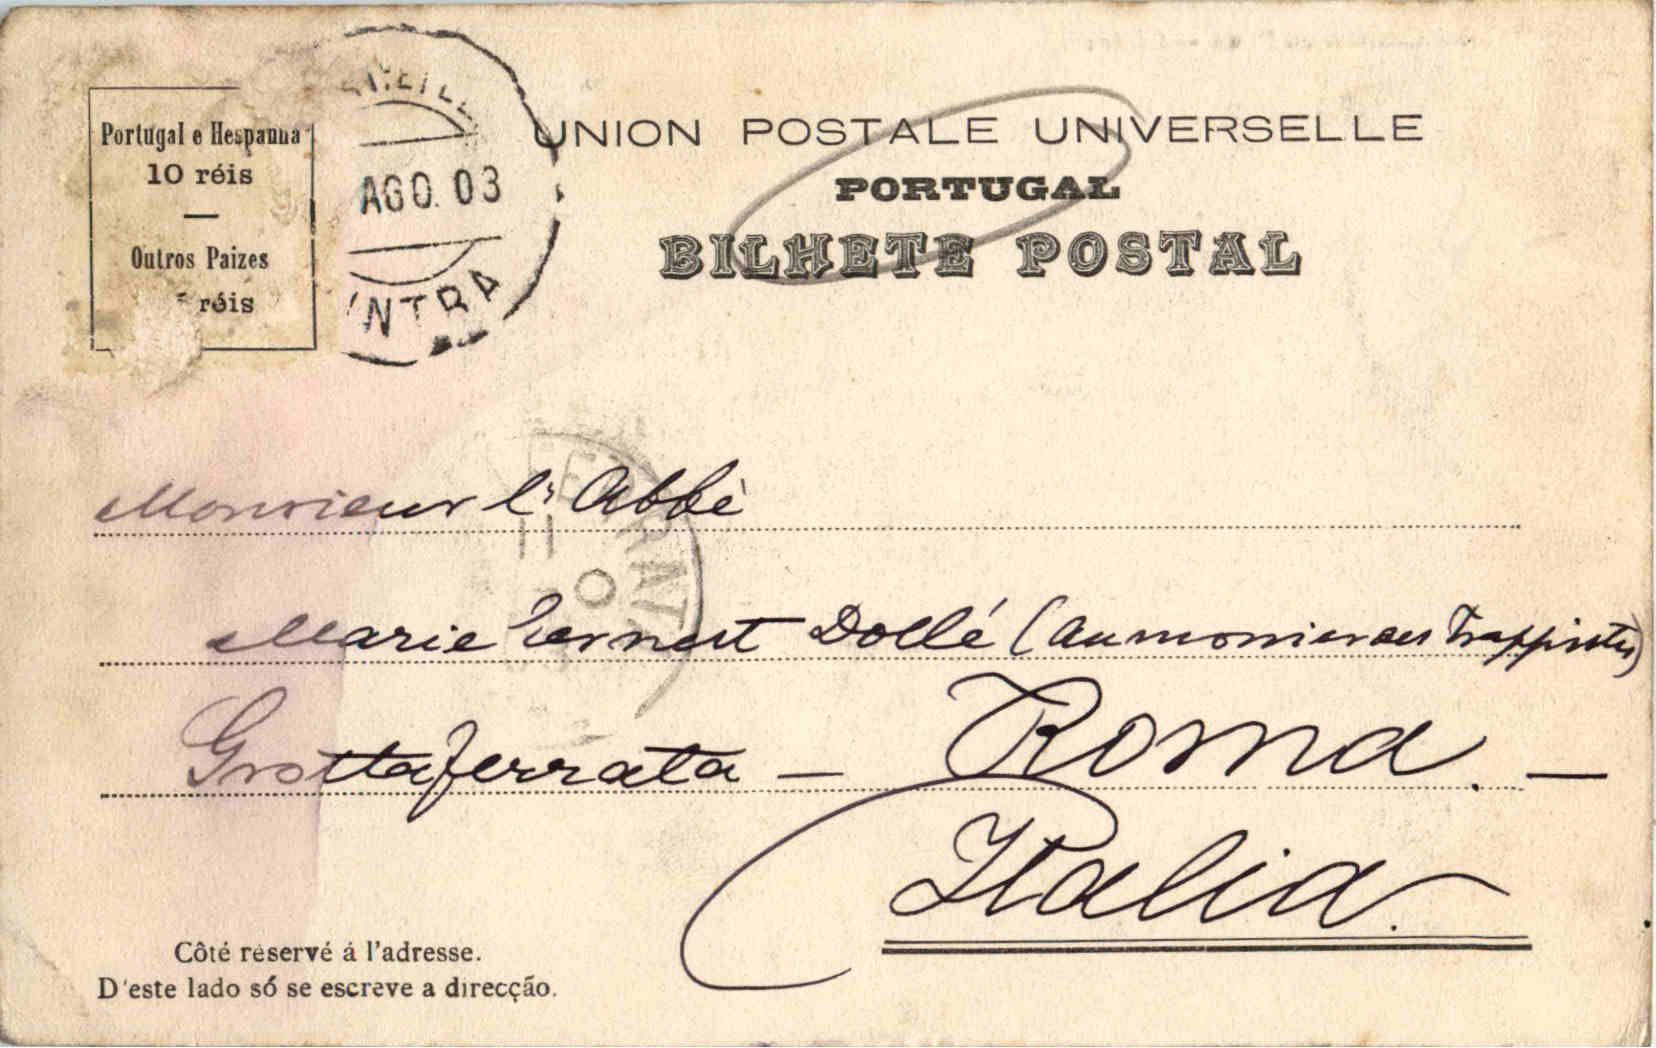 Portugal e Hespanha
10 réis
Outros Paizes
réis
AGO. 03
INTRA
UNION POSTALE UNIVERSELLE
PORTUGAL
BILHETE POSTAL
Monsieur l'Abbè
Marie Ernest Dollé (Aumonier des Trappistes)
Grottaferrata — Roma. —
Italia.
Côté réservé á l'adresse.
D'este lado só se escreve a direcção.